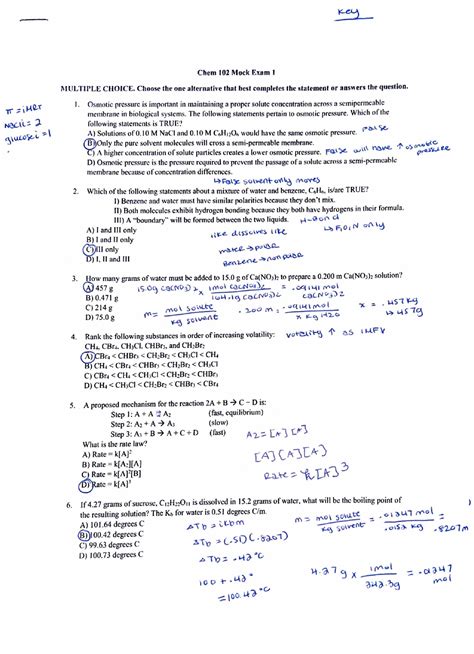 Key
Chem 102 Mock Exam 1
MULTIPLE CHOICE. Choose the one alternative that best completes the statement or answers the question.
π = iMRT
NaCl i = 2
glucose i = 1
1. Osmotic pressure is important in maintaining a proper solute concentration across a semipermeable
membrane in biological systems. The following statements pertain to osmotic pressure. Which of the
following statements is TRUE?
A) Solutions of 0.10 M NaCl and 0.10 M C₆H₁₂O₆ would have the same osmotic pressure. False
B) Only the pure solvent molecules will cross a semi-permeable membrane.
C) A higher concentration of solute particles creates a lower osmotic pressure. False will have ↑ osmotic pressure
D) Osmotic pressure is the pressure required to prevent the passage of a solute across a semi-permeable
membrane because of concentration differences.
↳ False solvent only moves
2. Which of the following statements about a mixture of water and benzene, C₆H₆, is/are TRUE?
I) Benzene and water must have similar polarities because they don't mix.
II) Both molecules exhibit hydrogen bonding because they both have hydrogens in their formula.
III) A "boundary" will be formed between the two liquids. H-Bond
↳ F, O, N only
A) I and III only like dissolves like
B) I and II only
C) III only water → polar
D) I, II and III Benzene → nonpolar
3. How many grams of water must be added to 15.0 g of Ca(NO₃)₂ to prepare a 0.200 m Ca(NO₃)₂ solution?
A) 457 g 15.0g Ca(NO₃)₂ 1mol Ca(NO₃)₂ = .09141 mol
B) 0.471 g 164.1g Ca(NO₃)₂ Ca(NO₃)₂
C) 214 g m = mol solute / kg solvent .200 m = .09141 mol / x kg H₂O x = .457 kg
D) 75.0 g ↳ 457g
4. Rank the following substances in order of increasing volatility: volatility ↑ as IMF↓
CH₄, CBr₄, CH₃Cl, CHBr₃, and CH₂Br₂
A) CBr₄ < CHBr₃ < CH₂Br₂ < CH₃Cl < CH₄
B) CH₄ < CBr₄ < CHBr₃ < CH₂Br₂ < CH₃Cl
C) CBr₄ < CH₄ < CH₃Cl < CH₂Br₂ < CHBr₃
D) CH₄ < CH₃Cl < CH₂Br₂ < CHBr₃ < CBr₄
5. A proposed mechanism for the reaction 2A + B → C – D is:
Step 1: A + A ⇄ A₂ (fast, equilibrium)
Step 2: A₂ + A → A₃ (slow)
Step 3: A₃ + B → A + C + D (fast) A2 = [A][A]
What is the rate law?
A) Rate = k[A]² [A][A][A]
B) Rate = k[A₂][A]
C) Rate = k[A]²[B] Rate = k[A]³
D) Rate = k[A]³
6. If 4.27 grams of sucrose, C₁₂H₂₂O₁₁ is dissolved in 15.2 grams of water, what will be the boiling point of
the resulting solution? The Kb for water is 0.51 degrees C/m.
A) 101.64 degrees C ΔTb = ikbm m = mol solute / kg solvent = .01247 mol / .0152 kg = .8207m
B) 100.42 degrees C ΔTb = (.51)(.8207)
C) 99.63 degrees C
D) 100.73 degrees C ΔTb = .42°C
100 + .42° 4.27g × 1mol / 342.3g = .01247 mol
= 100.42°C